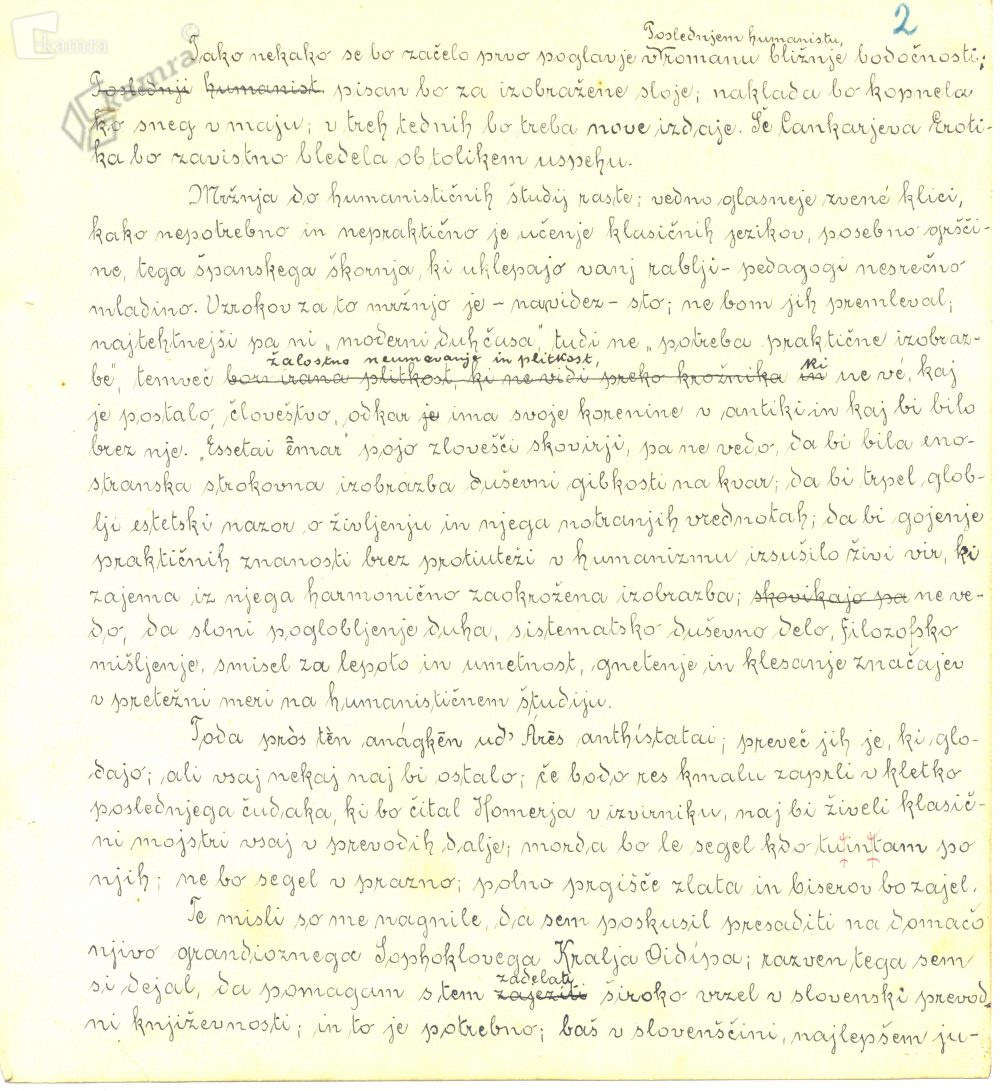 2
Poslednjem humanistu,
Tako nekako se bo začelo prvo poglavje v romanu bližnje bodočnosti:
Poslednji humanist. pisan bo za izobražene sloje; naklada bo kopnela
ko sneg v maju; v treh tednih bo treba nove izdaje. Še Cankarjeva Eroti-
ka bo zavistno bledela ob tolikem uspehu.
Mržnja do humanističnih študij raste; vedno glasneje zvené klici,
kako nepotrebno in nepraktično je učenje klasičnih jezikov, posebno gršči-
ne, tega španskega škornja, ki uklepajo vanj rablji-pedagogi nesrečno
mladino. Vzrokov za to mržnjo je – navidez – sto; ne bom jih premleval;
najtehtnejši pa ni „moderni duh časa“, tudi ne „potreba praktične izobraz-
žalostno neumevanje in plitkost,
be“, temveč borirana plitkost, ki ne vidi preko krožnika in ki ne ve, kaj
je postalo človeštvo, odkar je ima svoje korenine v antiki in kaj bi bilo
brez nje. „Essetai êmar“ pojo zlovešči skovirji, pa ne vedo, da bi bila eno-
stranska strokovna izobrazba duševni gibkosti na kvar; da bi trpel glob-
lji estetski nazor o življenju in njega notranjih vrednotah; da bi gojenje
praktičnih znanosti brez protiuteži v humanizmu izsušilo živi vir, ki
zajema iz njega harmonično zaokrožena izobrazba; skovikajo pa ne ve-
do, da sloni poglobljenje duha, sistematsko duševno delo, filozofsko
mišljenje, smisel za lepoto in umetnost, gnetenje in klesanje značajev
v pretežni meri na humanističnem študiju.
Toda pròs tèn anágkēn ud’ Árēs anthístatai; preveč jih je, ki glo-
dajo; ali vsaj nekaj naj bi ostalo; če bodo res kmalu zaprli v kletko
poslednjega čudaka, ki bo čital Homerja v izvirniku, naj bi živeli klasič-
ni mojstri vsaj v prevodih dalje; morda bo le segel kdo tuintam po
njih; ne bo segel v prazno; polno prgišče zlata in biserov bo zajel.
Te misli so me nagnile, da sem poskusil presaditi na domačo
njivo grandioznega Sophoklovega Kralja Oidípa; razven tega sem
zadelati
si dejal, da pomagam s tem zajeziti široko vrzel v slovenski prevod-
ni književnosti; in to je potrebno; baš v slovenščini, najlepšem ju-
kamra
kamra